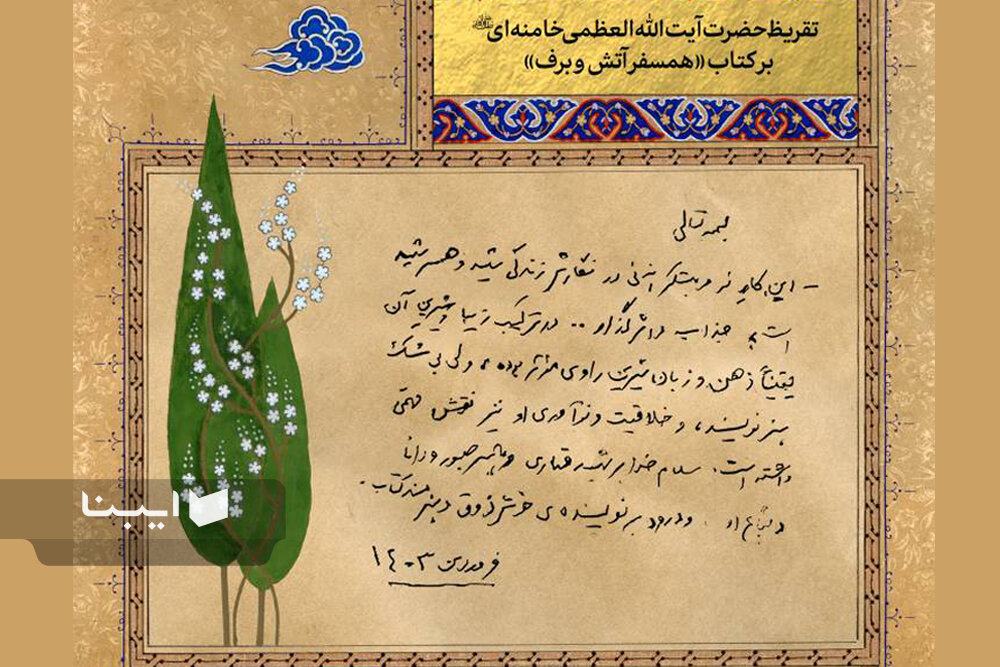 تقریظ حضرت آیت الله العظمی خامنه‌ای
بر کتاب «همسفر آتش و برف»
بسمه تعالی
- این کار نو و مبتکرانه‌ئی در نگارش زندگی شهید و همسر شهید
است، جذاب و اثرگذار .. در ترکیب زیبا و شیرین آن
یقیناً ذهن و زبان شیرین راوی مؤثر بوده، ولی بی شک
هنر نویسنده، و خلاقیت و نوآوری او نیز نقش مهمی
داشته است. سلام خدا بر شهید قهاری و همسر صبور و دانا
او. و درود بر نویسنده‌ی خوش ذوق و هنرمند کتاب.
فروردین ۱۴۰۳
ایبنا